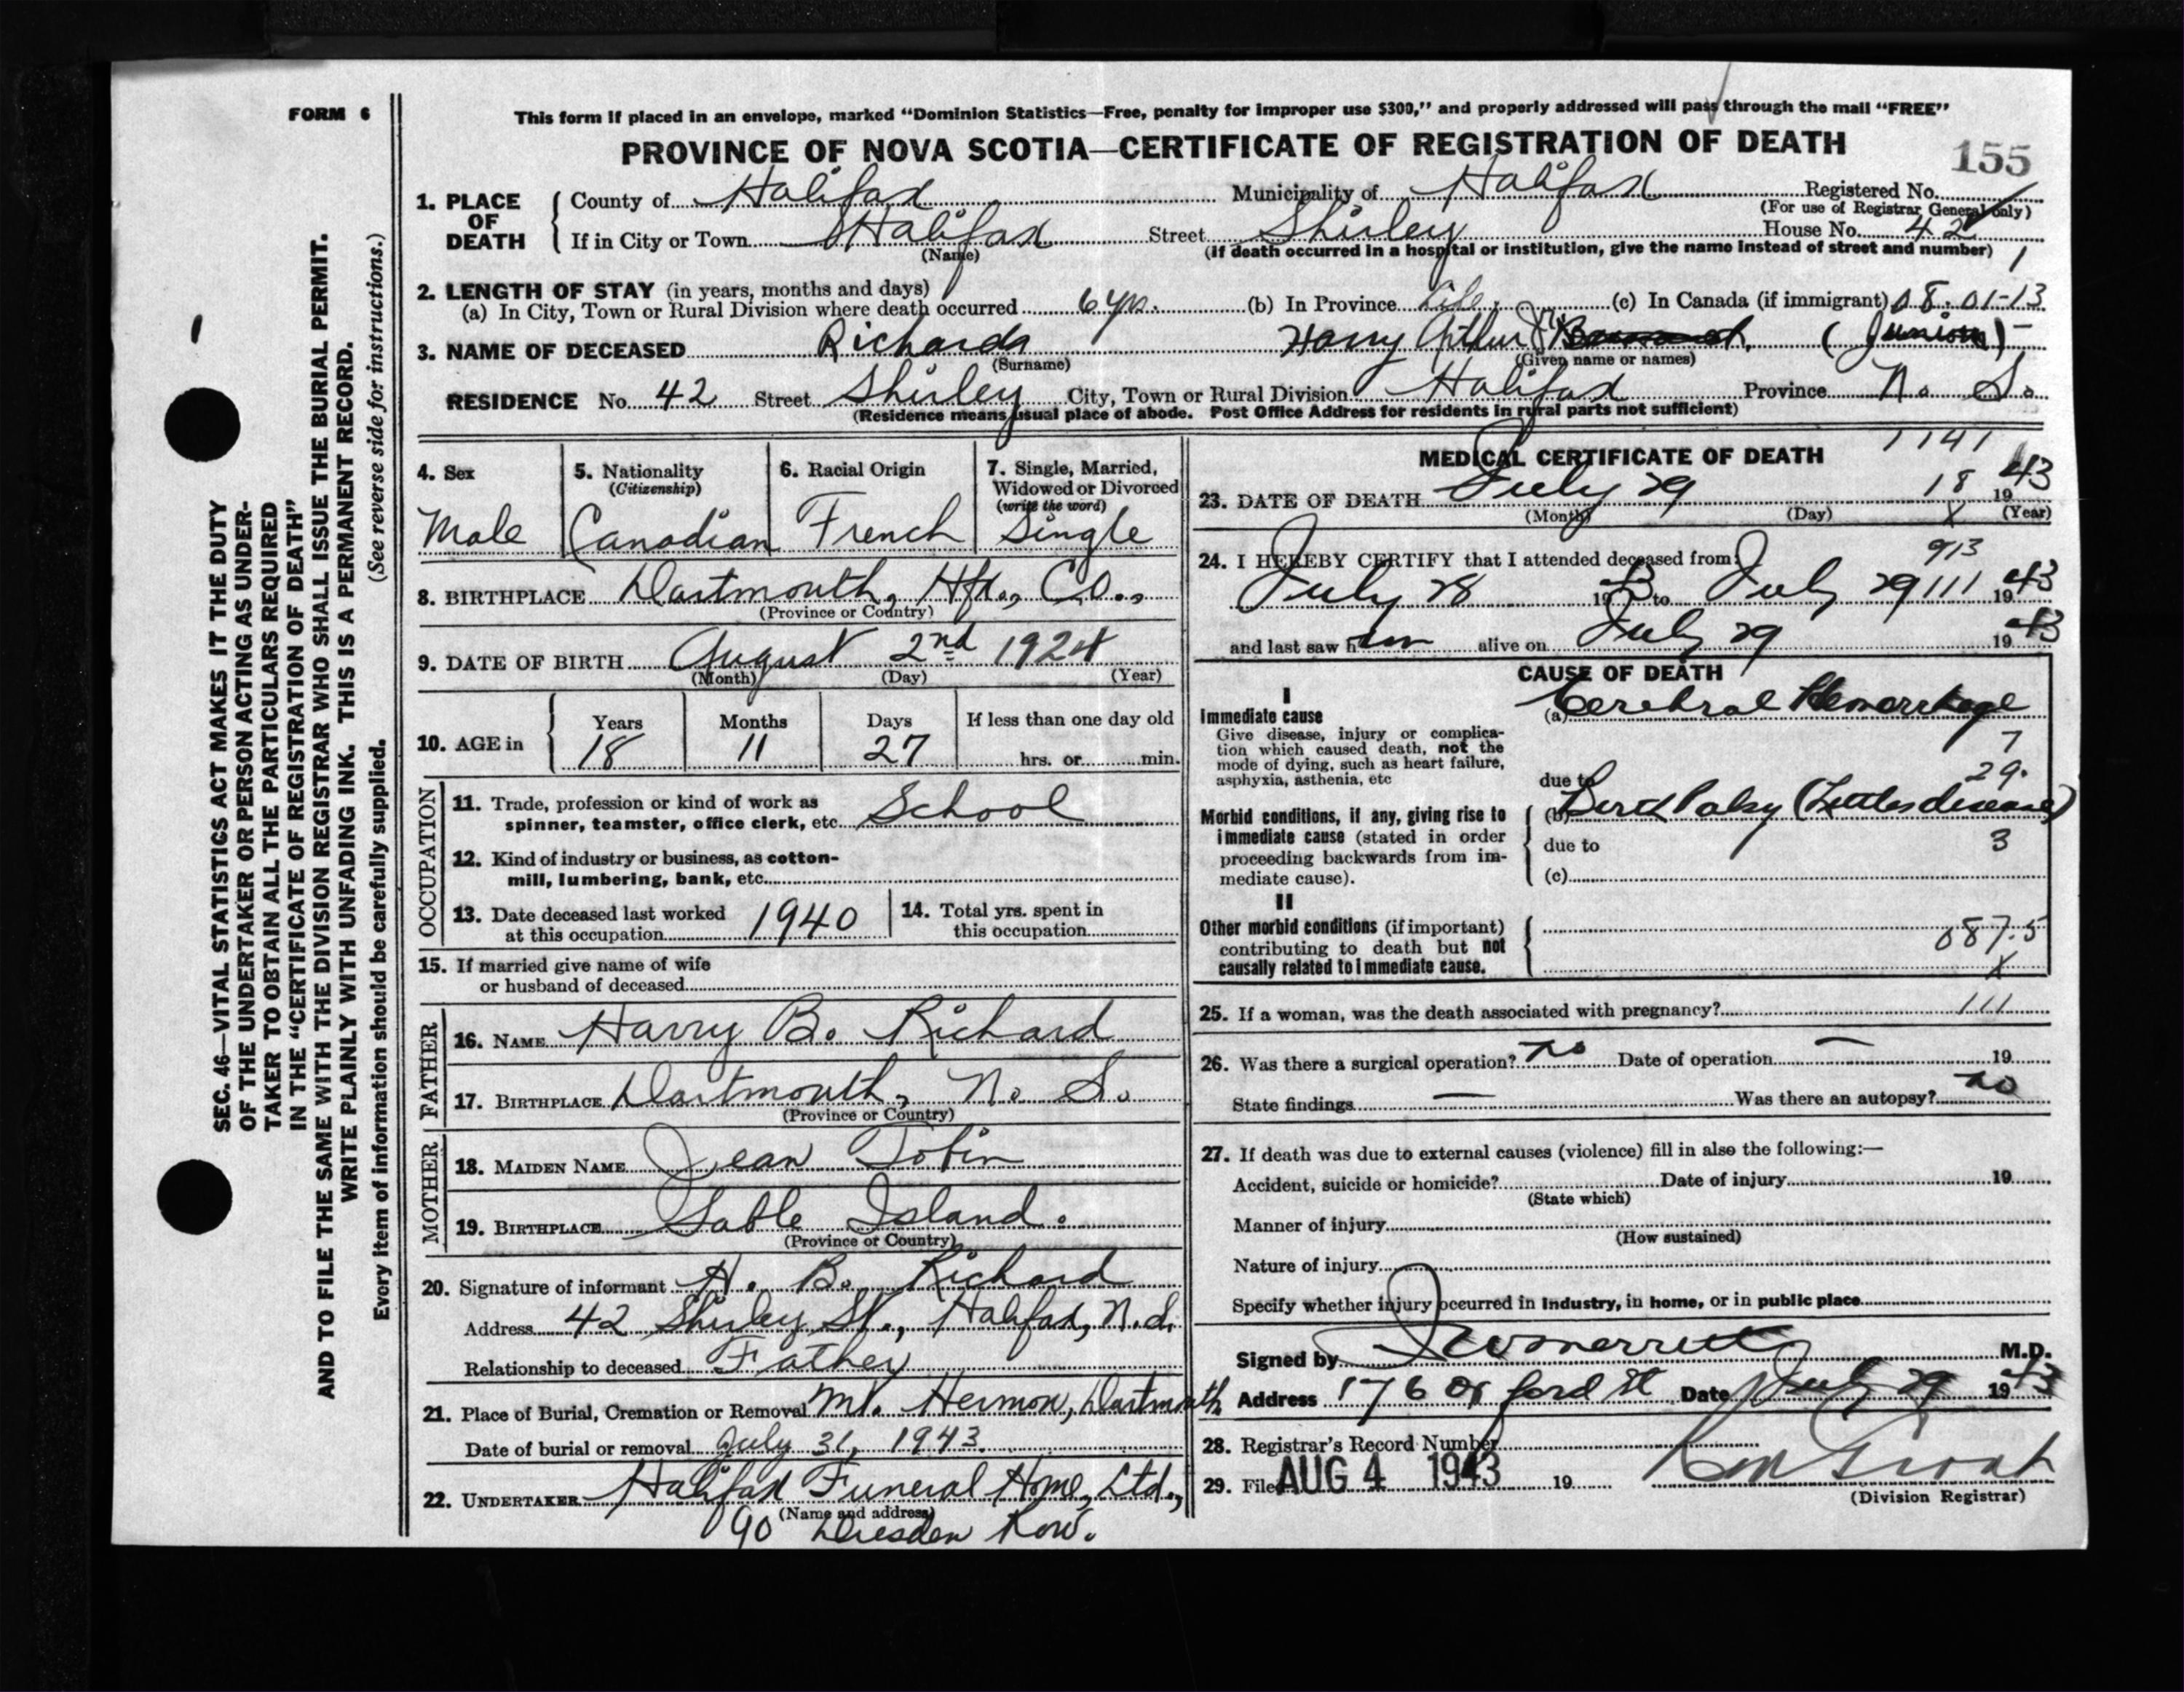 FORM 6
This form if placed in an envelope, marked "Dominion Statistics—Free, penalty for improper use $300," and properly addressed will pass through the mail "FREE"
PROVINCE OF NOVA SCOTIA—CERTIFICATE OF REGISTRATION OF DEATH
155
1. PLACE OF DEATH { County of Halifax Municipality of Halifax Registered No.
(For use of Registrar General only)
If in City or Town Halifax Street Shirley House No. 42
(Name) (If death occurred in a hospital or institution, give the name instead of street and number) 1
2. LENGTH OF STAY (in years, months and days)
(a) In City, Town or Rural Division where death occurred 6 yrs. (b) In Province Life. (c) In Canada (if immigrant) 08.01-13
3. NAME OF DECEASED Richards Harry Arthur (Junior) -
(Surname) (Given name or names)
RESIDENCE No. 42 Street Shirley City, Town or Rural Division Halifax Province N. S.
(Residence means usual place of abode. Post Office Address for residents in rural parts not sufficient)
4. Sex
Male
5. Nationality
(Citizenship)
Canadian
6. Racial Origin
French
7. Single, Married,
Widowed or Divorced
(write the word)
Single
8. BIRTHPLACE Dartmouth, Hfx., Co.,
(Province or Country)
9. DATE OF BIRTH August 2nd 1924
(Month) (Day) (Year)
10. AGE in { Years Months Days If less than one day old
18 11 27 hrs. or min.
OCCUPATION
11. Trade, profession or kind of work as
spinner, teamster, office clerk, etc. School
12. Kind of industry or business, as cotton-
mill, lumbering, bank, etc.
13. Date deceased last worked
at this occupation 1940
14. Total yrs. spent in
this occupation
15. If married give name of wife
or husband of deceased
FATHER
16. NAME Harry B. Richard
17. BIRTHPLACE Dartmouth, N. S.
(Province or Country)
MOTHER
18. MAIDEN NAME Jean Tobin
19. BIRTHPLACE Sable Island.
(Province or Country)
20. Signature of informant H. B. Richard
Address 42 Shirley St., Halifax, N.S.
Relationship to deceased Father
21. Place of Burial, Cremation or Removal Mt. Hermon, Dartmouth
Date of burial or removal July 31, 1943.
22. UNDERTAKER Halifax Funeral Home, Ltd.,
(Name and address)
90 Dresden Row.
1141
MEDICAL CERTIFICATE OF DEATH
23. DATE OF DEATH July 29 18 1943
(Month) (Day) X (Year)
24. I HEREBY CERTIFY that I attended deceased from: 913
July 28 1943 to July 29 111 1943
and last saw him alive on July 29 1943
CAUSE OF DEATH
I
Immediate cause
Give disease, injury or complica-
tion which caused death, not the
mode of dying, such as heart failure,
asphyxia, asthenia, etc
(a) Cerebral Hemorrhage
7
due to 29.
Morbid conditions, if any, giving rise to
immediate cause (stated in order
proceeding backwards from im-
mediate cause).
(b) Birth Palsy (Littles disease)
due to 3
(c)
II
Other morbid conditions (if important)
contributing to death but not
causally related to immediate cause.
087.5
X
25. If a woman, was the death associated with pregnancy? 111
26. Was there a surgical operation? no Date of operation — 19
State findings — Was there an autopsy? no
27. If death was due to external causes (violence) fill in also the following:—
Accident, suicide or homicide? Date of injury 19
(State which)
Manner of injury
(How sustained)
Nature of injury
Specify whether injury occurred in industry, in home, or in public place
Signed by M.D.
Address 176 Oxford St Date July 29 1943
28. Registrar's Record Number
29. Filed AUG 4 1943 19
(Division Registrar)
SEC. 46—VITAL STATISTICS ACT MAKES IT THE DUTY
OF THE UNDERTAKER OR PERSON ACTING AS UNDER-
TAKER TO OBTAIN ALL THE PARTICULARS REQUIRED
IN THE "CERTIFICATE OF REGISTRATION OF DEATH"
AND TO FILE THE SAME WITH THE DIVISION REGISTRAR WHO SHALL ISSUE THE BURIAL PERMIT.
WRITE PLAINLY WITH UNFADING INK. THIS IS A PERMANENT RECORD.
Every item of information should be carefully supplied. (See reverse side for instructions.)